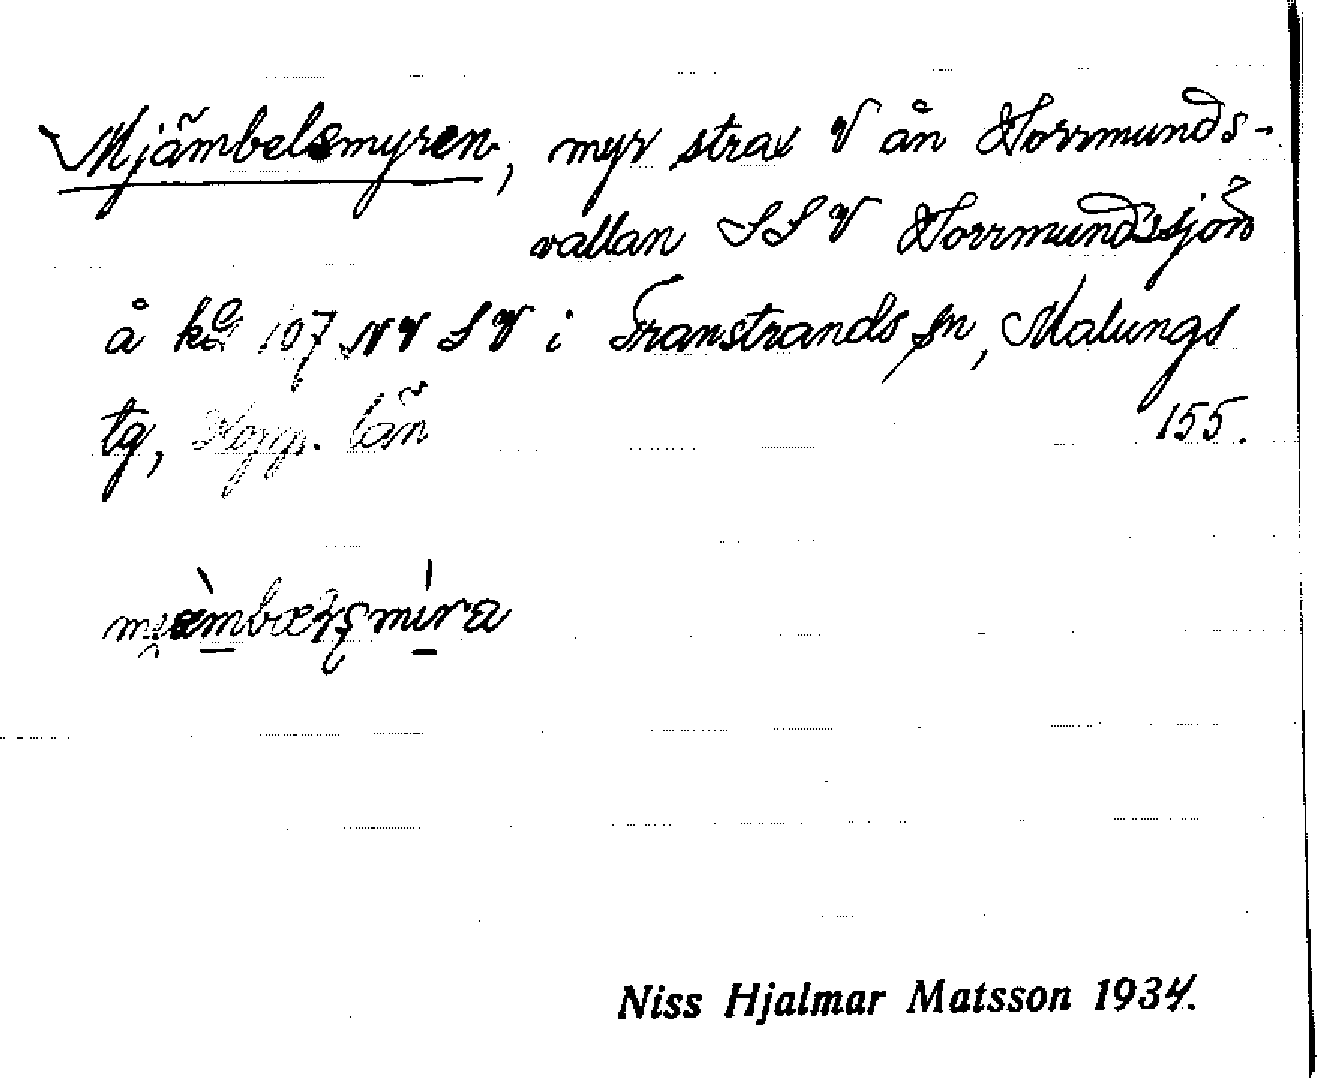 Mjämbelsmyren, myr strax V ån Horrmunds-
vallan SSV Horrmundssjön
å kbl 107 NV SV i Transtrands sn, Malungs
tg, Kopp. län 155.
Niss Hjalmar Matsson 1934.